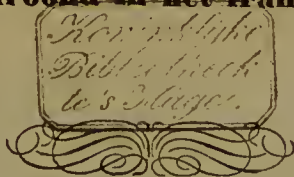 in het
Koninklijke
Bibliotheek
te 's Hage.